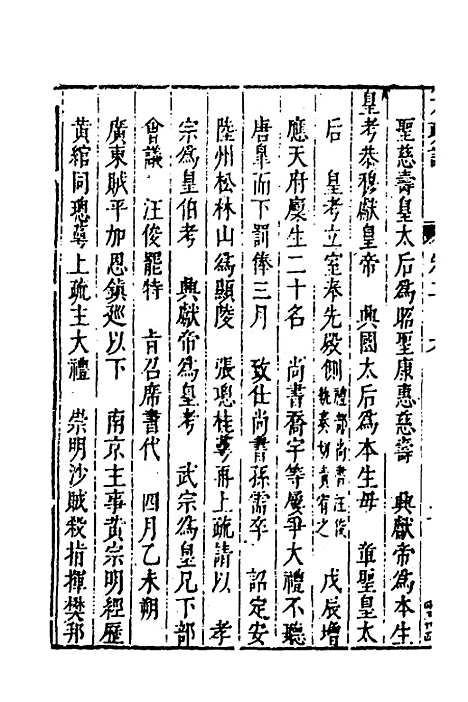 聖慈壽皇太后為昭聖康惠慈壽　興獻帝為本生
皇考恭穆獻皇帝　興國太后為本生母　章聖皇太
后　皇考立室奉先殿側禮部尚書汪俊執奏切責宥之　戊辰增
應天府廩生二十名　尚書喬宇等屢爭大禮不聽
唐皐而下罰俸三月　致仕尚書孫需卒　詔定安
陸州松林山為顯陵　張璁桂萼再上疏請以　孝
宗為皇伯考　興獻帝為皇考　武宗為皇兄下部
會議　汪俊罷特　旨召席書代　四月乙未朔
廣東賊平加恩鎮廵以下　南京主事黃宗明經歷
黃綰同璁萼上疏主大禮　崇明沙賊殺指揮樊邦